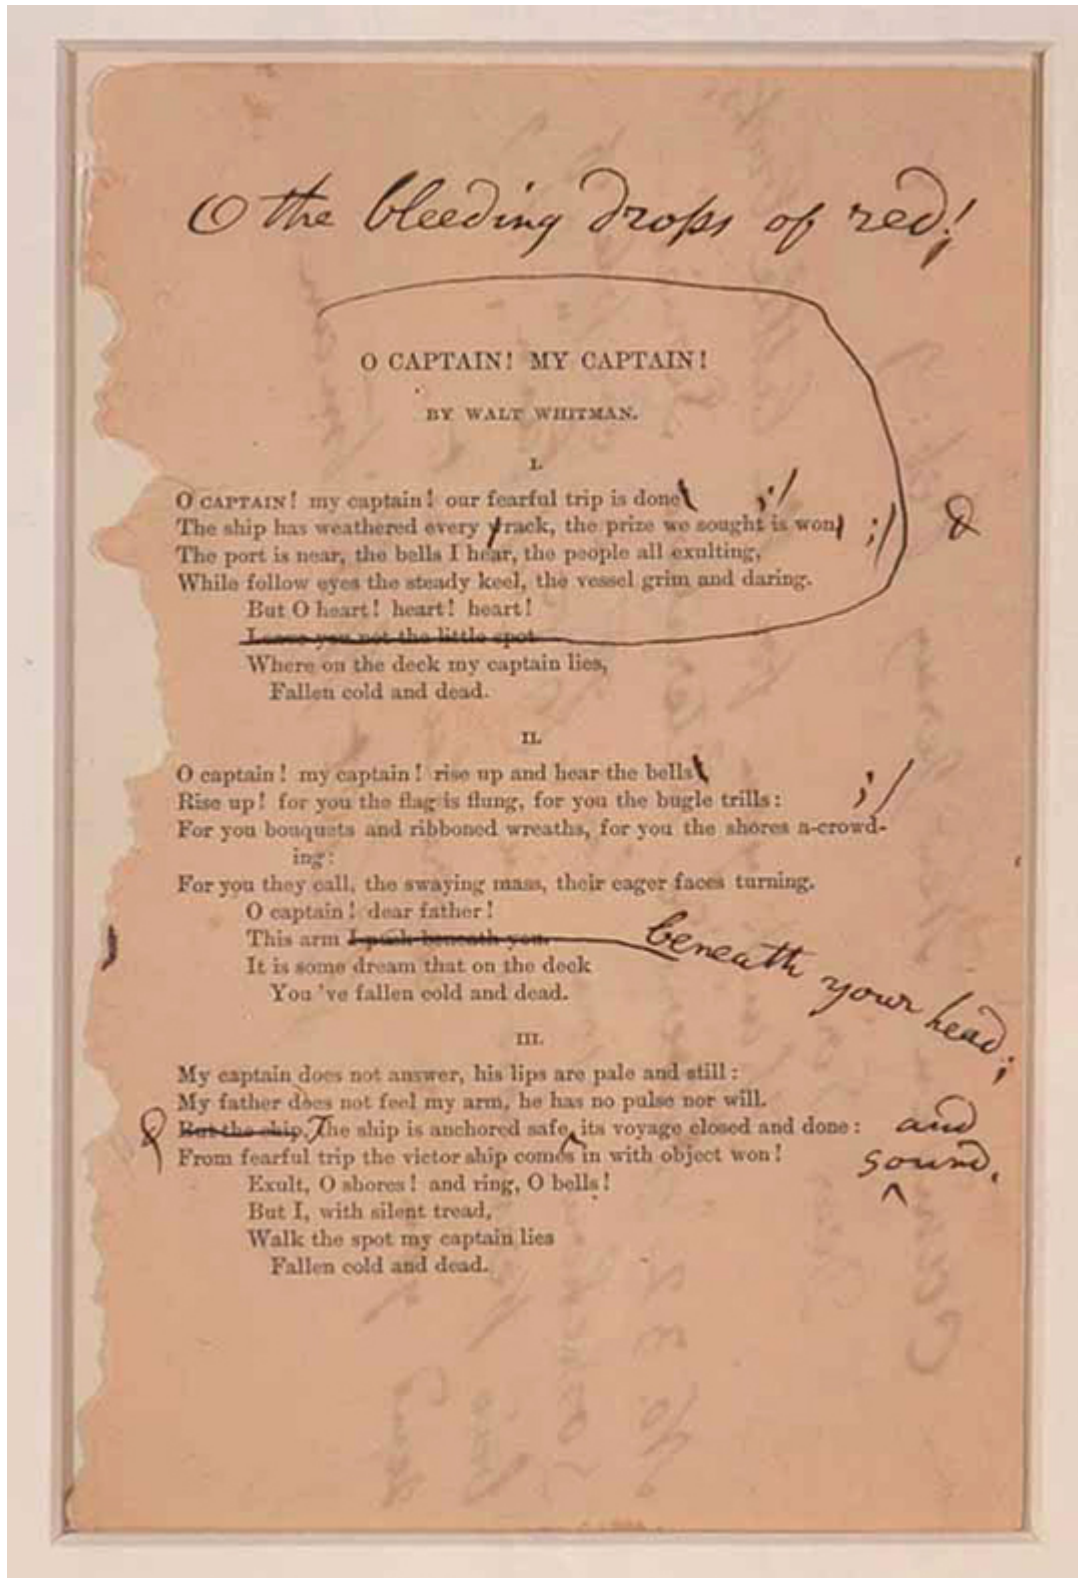 O the bleeding drops of red!
O CAPTAIN! MY CAPTAIN!
BY WALT WHITMAN.
I.
O CAPTAIN! my captain! our fearful trip is done ;/
The ship has weathered every wrack, the prize we sought is won ;/
The port is near, the bells I hear, the people all exulting,
While follow eyes the steady keel, the vessel grim and daring.
But O heart! heart! heart!
Leave you not the little spot
Where on the deck my captain lies,
Fallen cold and dead.
II.
O captain! my captain! rise up and hear the bells ;/
Rise up! for you the flag is flung, for you the bugle trills:
For you bouquets and ribboned wreaths, for you the shores a-crowd-
ing:
For you they call, the swaying mass, their eager faces turning.
O captain! dear father!
This arm I push beneath you. beneath your head;
It is some dream that on the deck
You 've fallen cold and dead.
III.
My captain does not answer, his lips are pale and still:
My father does not feel my arm, he has no pulse nor will.
But the ship. The ship is anchored safe, its voyage closed and done: and
From fearful trip the victor ship comes in with object won! sound.
Exult, O shores! and ring, O bells!
But I, with silent tread,
Walk the spot my captain lies
Fallen cold and dead.